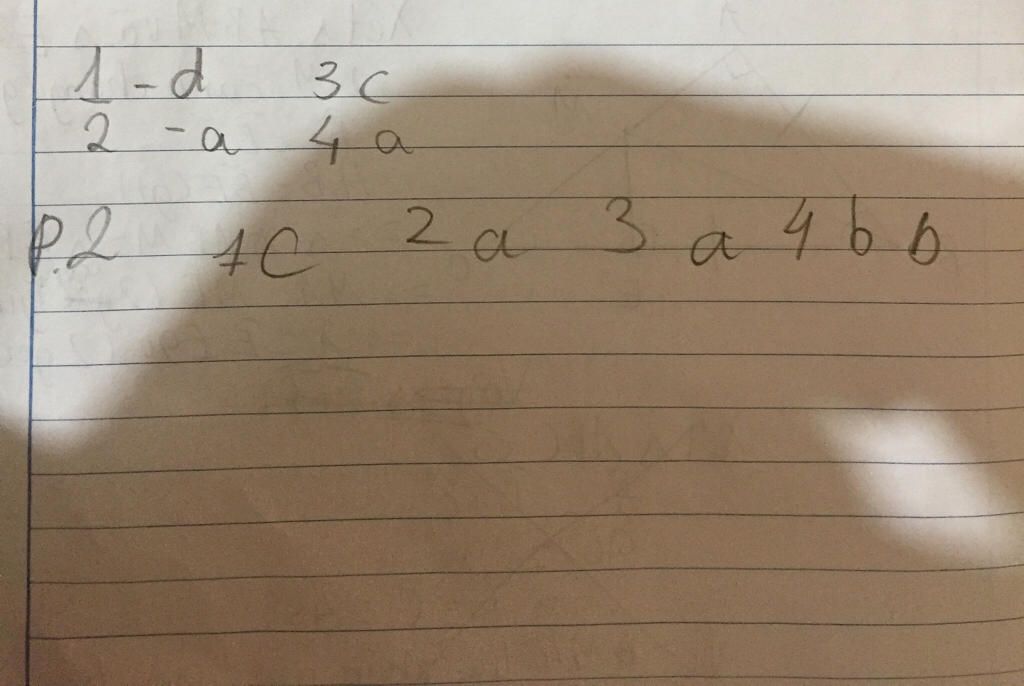 1 - d 3 c
2 - a 4 a
P.2 1 C 2 a 3 a 4 b b